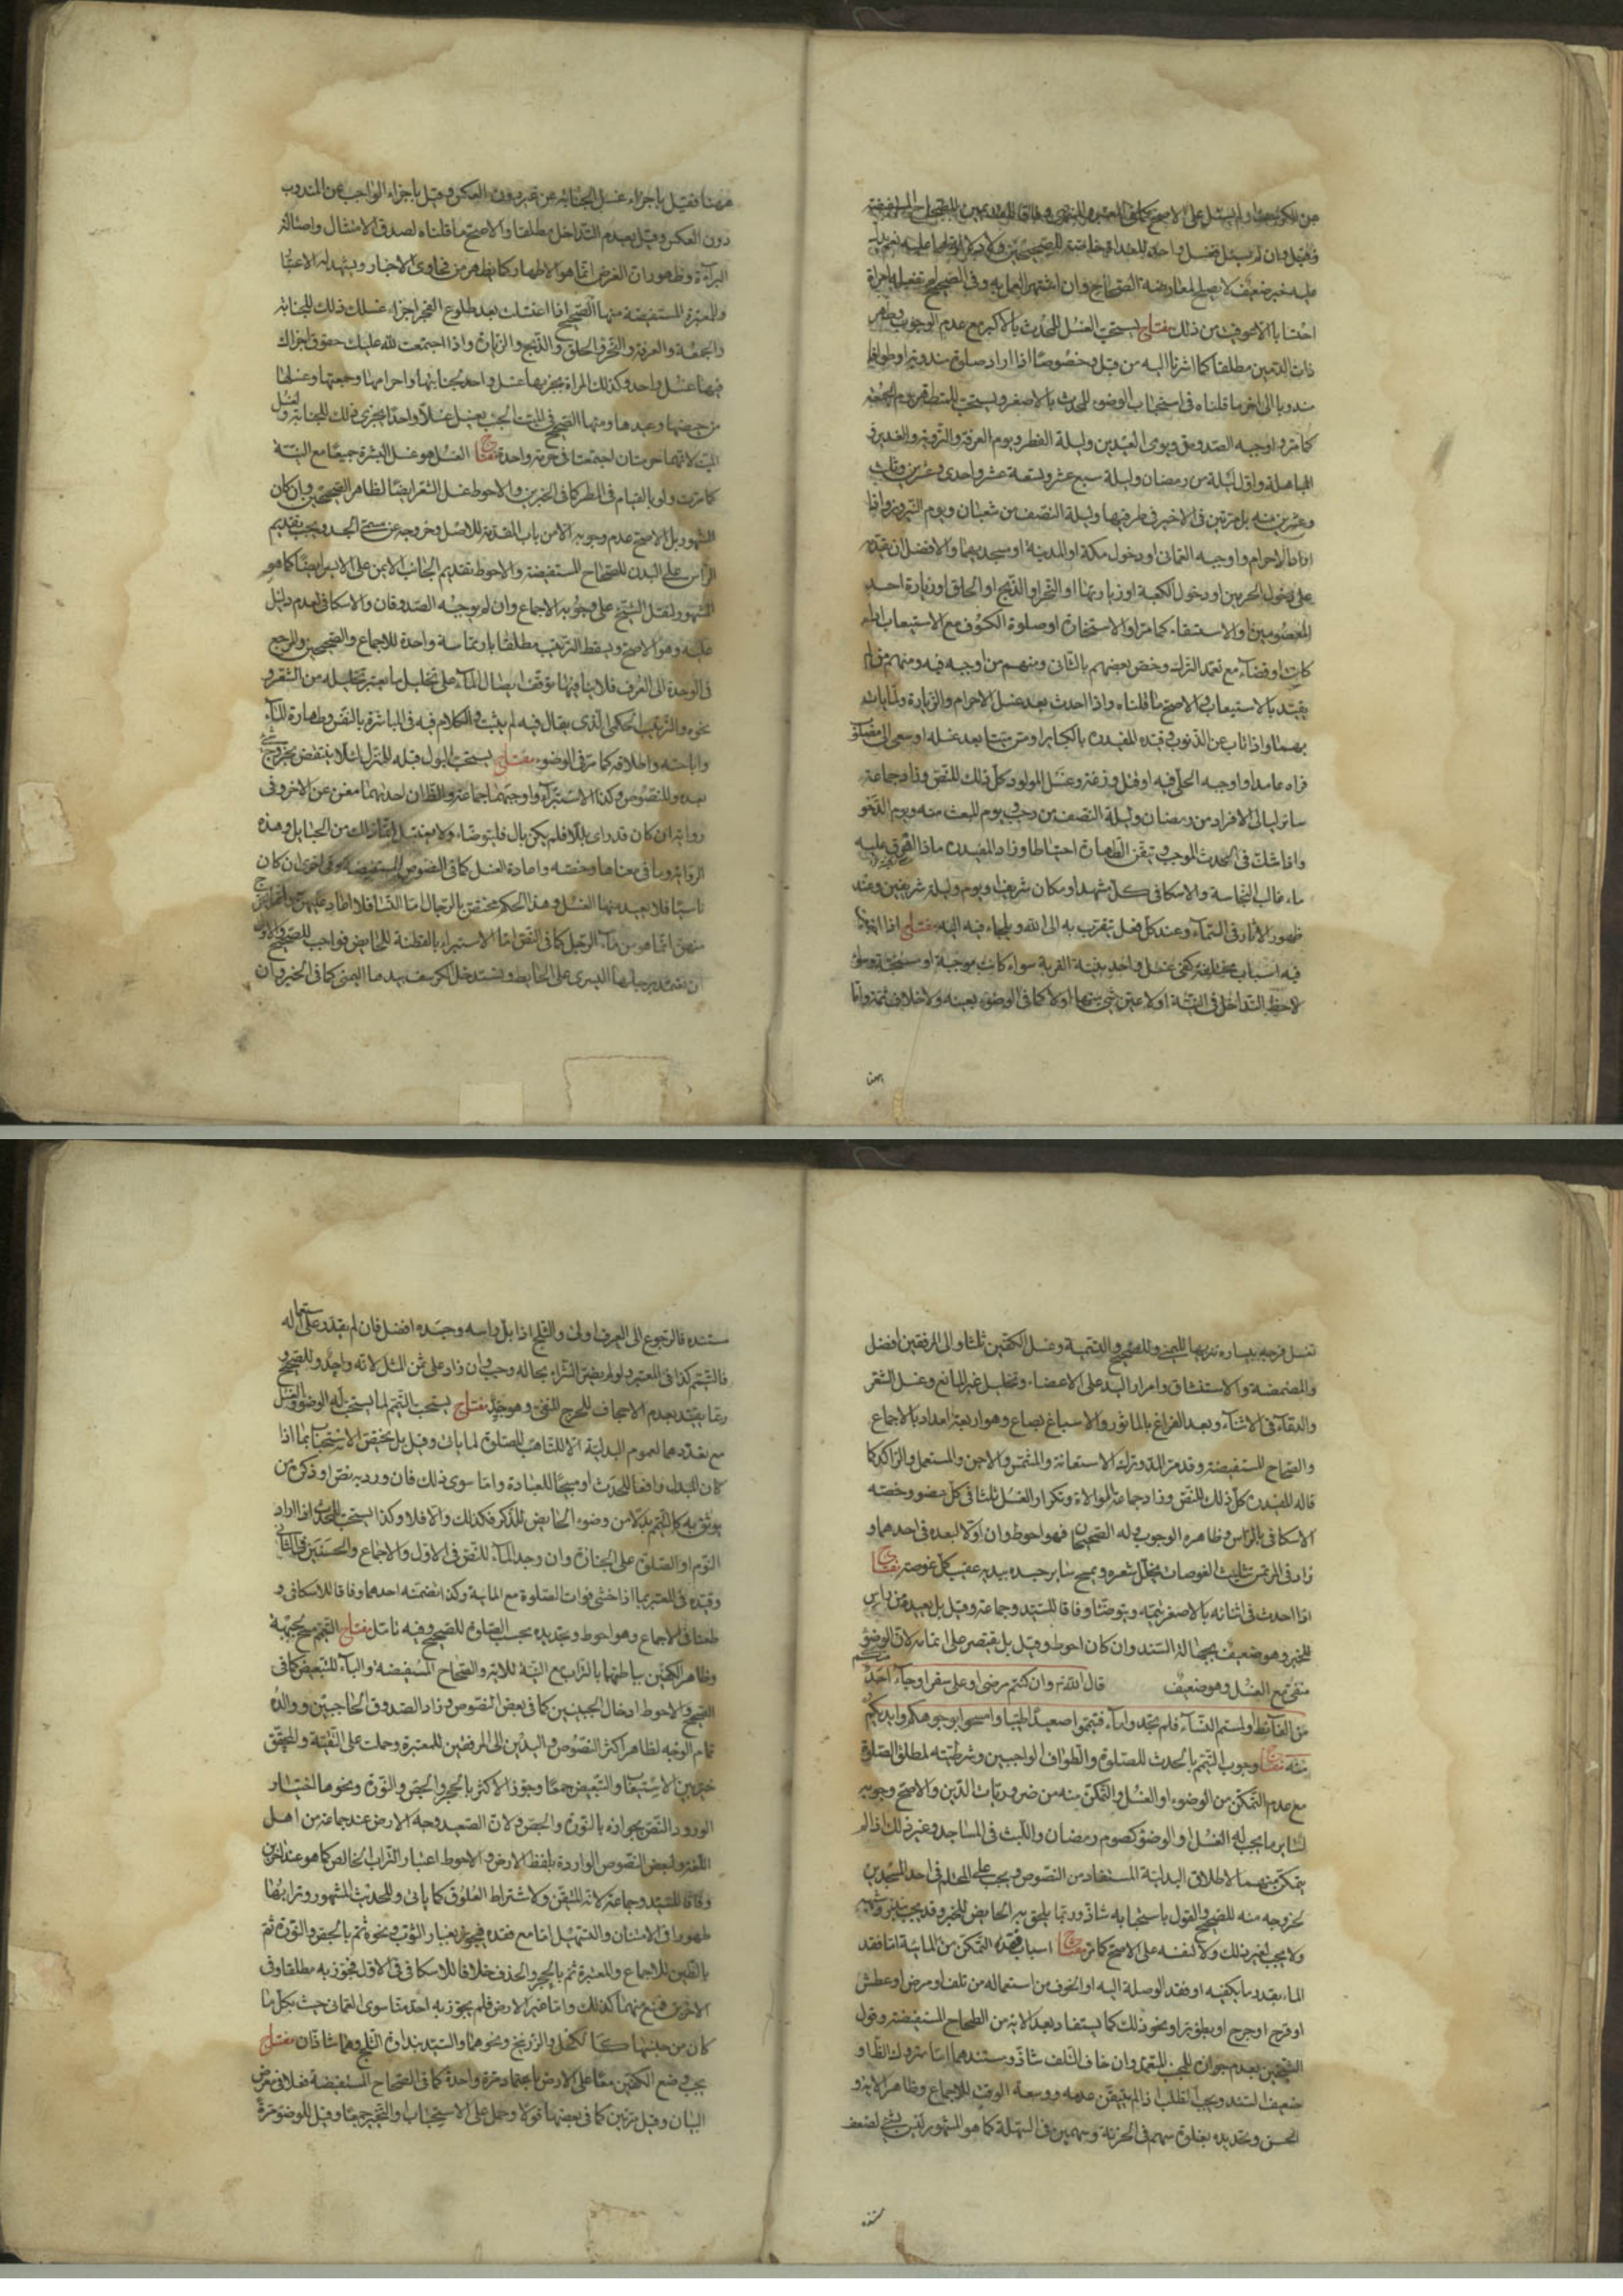 عليه خبر ضعيف لا يصلح لمعارضة الصحاح وان اشتهر العمل به وفى الصحيح
احتسابا لا خوف من ذلك مفتاح يستحب الغسل للمحدث بالاكبر مع عدم الوجوب وطهر
ذات الدمين مطلقا كما اشرنا اليه من قبل وخصوصا اذا اراد صلوة مندوبة او طوافا
مندوبا الى اخر ما قلناه فى استحباب الوضوء للمحدث بالاصغر ويستحب للمتطهر يوم الجمعة
كما مر واوجبه الصدوق ويومى العيدين وليلة الفطر ويوم العرفة والتروية والغدير و
المباهلة واول ليلة من رمضان وليلة سبع عشر وتسعة عشر واحدى وعشرين وثلث
وعشرين منه بل مرتين فى الاخير فى طرفيها وليلة النصف من شعبان ويوم النيروز واذا
اراد الاحرام واوجبه العمانى او دخول مكة او المدينة او مسجديهما والافضل ان يقدم
على دخول الحرمين او دخول الكعبة او زيارتها او النحر او الذبح او الحلق او زيارة احد
المعصومين او الاستسقاء كما مر او الاستخارة او صلوة الكسوف مع الاستيعاب اداء
كانت او قضاء مع تعمد الترك وخص بعضهم بالثانى ومنهم من اوجبه فيه ومنهم من لم
يقيد بالاستيعاب والاصح ما قلناه واذا احدث بعد غسل الاحرام والزيارة
واذا تاب عن الذنوب وقيده المفيد ره بالكباير او مس ميتا بعد غسله او سعى الى مصلوب
فراه عامدا واوجبه الحلبى فيه او قتل وزغة وغسل المولود كل ذلك للنص وزاد جماعة
سائر ليالى الافراد من رمضان وليلة النصف من رجب ويوم المبعث منه ويوم الدحو
واذا شك فى الحدث الموجب وتيقن الطهارة احتياطا وزاد المفيد ره ماذا اهرق عليه
ماء غالب النجاسة والاسكافى كل مشهد او مكان شريف او يوم وليلة شريفين وعند
ظهور الاثار فى السماء وعند كل فعل يتقرب به الى الله ويلجاء فيه اليه مفتاح اذا اجتمع
فيه اسباب مختلفة كفى غسل واحد بنية القربة سواء كانت موجبة او مستحبة وسواء
لاحظ التداخل فى النية او لا عين شئ منها او لا كما فى الوضوء بعينه ولا خلاف ثمة واما
ههنا فقيل باجزاء غسل الجنابة عن غيره دون العكس وقيل باجزاء الواجب عن المندوب
دون العكس وقيل بعدم التداخل مطلقا والاصح ما قلناه لصدق الامتثال واصالة
البراءة وظهور ان الغرض انما هو الاطهار كما يظهر من فحاوى الاخبار ويشهد له الاعتبار
والمعتبرة المستفيضة منها الصحيح اذا اغتسلت بعد طلوع الفجر اجزاء غسلك ذلك للجنابة
والجمعة والعرفة والنحر والحلق والذبح والزيارة واذا اجتمعت لله عليك حقوق اجزاك
فيها غسل واحد وكذلك المراة يجزيها غسل واحد لجنابتها واحرامها وجمعتها وغسلها
من حيضها وعيدها ومنها الصحيح فى الميت الجنب يغسل غسلا واحدا يجزى ذلك للجنابة ولغسل
الميت لانهما حرمتان اجتمعتا فى حرمة واحدة مفتاح الغسل هو غسل البشرة جميعا مع النية
كما مرت ولو بالقيام فى المطر كما فى الخبرين والاحوط غسل الشعر ايضا لظاهر الصحيحين وان كان
المشهور بل الاصح عدم وجوبه الا من باب المقدمة للاصل وخروجه عن مسمى الجسد ويجب تقديم
الراس على البدن للصحاح المستفيضة والاحوط تقديم الجانب الايمن على الايسر ايضا كما هو
المشهور لنقل الشيخ على وجوبه الاجماع وان لم يوجبه الصدوقان والاسكافى لعدم دليل
عليه وهو الاصح ويسقط الترتيب مطلقا بارتماسة واحدة للاجماع والصحيحين والمرجع
فى الوحدة الى العرف فلا ينافيها توقف ايصال الماء على تخليل ما يعتبر تخليله من الشعر و
نحوه والترتيب الحكمى الذى يقال فيه لم يثبت والكلام فيه فى المباشرة بالنفس وطهارة الماء
واباحته واطلاقه كما مر فى الوضوء مفتاح يستحب البول قبله للمنزل لئلا ينتقض بخروج شئ
بعده وللنصوص وكذا الاستبراء واوجبهما جماعة والظان احدهما مغن عن الاخر وفى
رواية ان كان قد راى بللا فلم يكن بال فليتوضاء ولا يغتسل انما ذلك من الحبايل وهذه
الرواية وما فى معناها رخصة واعادة الغسل كما فى النصوص المستفيضة وفى اخرى ان كان
ناسيا فلا يعيد منها الغسل وهذا الحكم مختص بالرجال اما النساء فلا اعادة عليهن
منهن انما هو من ماء الرجل كما فى النص اما الاستبراء بالقطنة للحايض فواجب للصحيح والاولى
ان تعتمد برجلها اليسرى على الحايط وتستدخل الكرسف بيدها اليمنى كما فى الخبر وان
تغسل فرجه بيساره والتسمية وغسل الكفين ثلثا والى المرفقين افضل
والمضمضة والاستنشاق وامرار اليد على الاعضاء وتخليل غير المانع وغسل الشعر
والدعاء فى الاثناء وبعد الفراغ بالماثور والاسباغ بصاع وهو اربعة امداد بالاجماع
والصحاح المستفيضة وقد مر المد وترك الاستعانة والمشمس والاجن والمستعمل والراكد كما
قاله المفيد ره كل ذلك للنص وزاد جماعة الموالاة وتكرار الغسل ثلثا فى كل عضو وخصه
الاسكافى بالراس وظاهره الوجوب وله الصحيحان فهو احوط وان اولا لبعده فى احدهما و
زاد فى المرتمس تثليث الغوصات يخلل شعره ويمسح ساير جسده بيديه عقيب كل غوصة مفتاح
اذا احدث فى اثنائه بالاصغر يتمه ويتوضا وفاقا للسيد وجماعة وقيل بل يعيده من راس
للخبر وهو ضعيف بجهالة السند وان كان احوط وقيل بل يقتصر على اتمامه لان الوضوء
منفى مع الغسل وهو ضعيف قال الله تع وان كنتم مرضى او على سفر او جاء احد منكم
من الغائط او لمستم النساء فلم تجدوا ماء فتيمموا صعيدا طيبا وامسحوا بوجوهكم وايديكم
منه مفتاح وجوب التيمم بالحدث للصلوة والطواف الواجبين وشرطيته لمطلق الصلوة
مع عدم التمكن من الوضوء او الغسل والتمكن منه من ضروريات الدين والاصح وجوبه
لساير ما يجب له الغسل او الوضوء كصوم رمضان واللبث فى المساجد وغير ذلك اذا لم
يتمكن منهما لاطلاق البدلية المستفاد من النصوص ويجب على المحتلم فى احد المسجدين
لخروجه منه للصحيح والقول باستحبابه شاذ وربما يلحق به الحايض للخبر وقد يجب بنذر وشبهه
ولا يجب لغير ذلك ولا لنفسه على الاصح كما مر مفتاح اسباب فقد التمكن من المائية اما فقد
الماء بقدر ما يكفيه او فقد الوصلة اليه او الخوف من استعماله من تلف او مرض او عطش
او قرح او جرح او نحو ذلك كما يستفاد بعد الاية من الصحاح المستفيضة وقول
الشيخين بعدم جوازه للجنب المتعمد وان خاف التلف شاذ ومستندهما اما متروك الظاهر او
ضعيف السند ويجب الطلب اذا لم يتيقن عدمه ووسعة الوقت للاجماع وظاهر الاية و
الحسن وتحديده بغلوة سهم فى الحزنة وسهمين فى السهلة كما هو المشهور ليس بشئ لضعف
مستنده فالرجوع الى العرف اولى والثلج اذا بل راسه وجسده افضل فان لم يقدر على استعماله
فالتيمم كذا فى المعتبر ولو لم يضر الشراء بحاله وجب وان زاد على ثمن المثل لانه واجد وللصحيح و
ربما يقيد بعدم الاجحاف للحرج المنفى وهو جيد مفتاح يستحب التيمم لما يستحب له الوضوء والغسل
مع تعذرهما لعموم البدلية الا للتاهب للصلوة لما يات وقيل بل يختص الاستحباب بما اذا
كان المبدل رافعا للحدث او مبيحا للعبادة واما سوى ذلك فان ورد به نص او ذكره من
يوثق به كالتيمم بدلا من وضوء الحايض للذكر فكذلك والا فلا وكذا يستحب للمحدث اذا اراد
النوم او الصلوة على الجنازة وان وجد الماء للنص فى الاول والاجماع والحسنين فى الثانى
وقيده فى المعتبر بما اذا خشى فوات الصلوة مع المائية وكذا تضمنه احدهما وفاقا للاسكافى و
طعنا فى الاجماع وهو احوط وتجديده بحسب الصلوة للصحيح وفيه تامل مفتاح التيمم مسح الجبهة
وظاهر الكفين بباطنهما بالتراب مع النية للاية والصحاح المستفيضة والباء للتبعيض كما فى
الصحيح والاحوط ادخال الجبينين كما فى بعض النصوص وزاد الصدوق الحاجبين ووالده
تمام الوجه لظاهر اكثر النصوص واليدين الى المرفقين للمعتبرة وحملت على التقية والمحقق
خير بين الاستيعاب والتبعيض جمعا وجوز الاكثر بالحجر والجص والنورة ونحوها اختيارا
لورود النص بجوازه بالنورة والجص ولان الصعيد وجه الارض عند جماعة من اهل
اللغة ولبعض النصوص الواردة بلفظ الارض والاحوط اعتبار التراب الخالص كما هو عند اخرين
وفاقا للسيد وجماعة لانه المتيقن ولاشتراط العلوق كما ياتى وللحديث المشهور وترابها
طهورا فى الامتنان والتسهيل اما مع فقده فيجوز بغبار الثوب ونحوه ثم بالجص والنورة ثم
بالطين للاجماع والمعتبرة ثم بالحجر والخذف خلافا للاسكافى فى الاول فجوز به مطلقا وفى
الاخرين فمنع منهما كذلك واما غير الارض فلم يجوز به احد منا سوى العمانى حيث بكل ما
كان من جنسها كالكحل والزرنيخ ونحوهما والسيد بنداوة الثلج وهما شاذان مفتاح
يجب وضع الكفين معا على الارض باعتماد مرة واحدة كما فى الصحاح المستفيضة فعلا فى معرض
البيان وقيل مرتين كما فى بعضها قولا وحمل على الاستحباب والتخيير جمعا وقيل للوضوء مرة